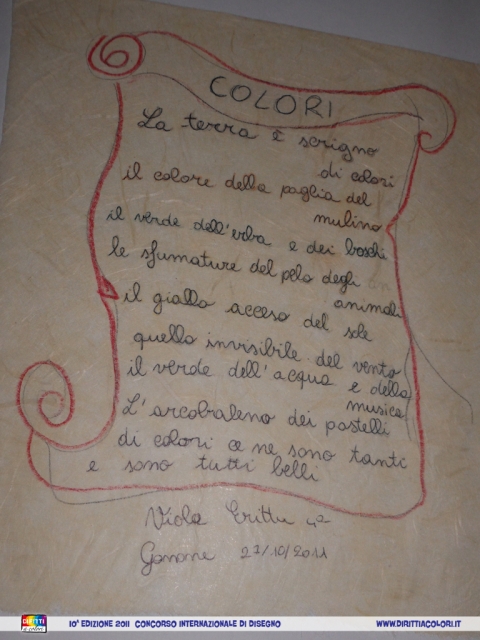 COLORI
La terra è scrigno
di colori
il colore della paglia del
mulino
il verde dell'erba e dei boschi
le sfumature del pelo degli
animali
il giallo acceso del sole
quello invisibile del vento
il verde dell'acqua e della
musica
L'arcobaleno dei pastelli
di colori ce ne sono tanti
e sono tutti belli
Viola 4ª
27/10/2011
DIRITTI a colori
10ª EDIZIONE 2011 CONCORSO INTERNAZIONALE DI DISEGNO
WWW.DIRITTIACOLORI.IT